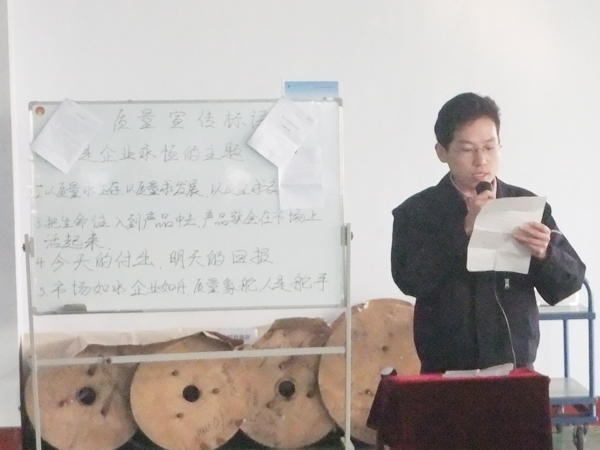 质量宣传标语
是企业永恒的主题
以质量求生存 以质量求发展、以质量求
3.把生命注入到产品中去,产品就会在市场上
活起来、
4.今天的付出、明天的回报
5.市场如水 企业如舟 质量象舵 人是舵手